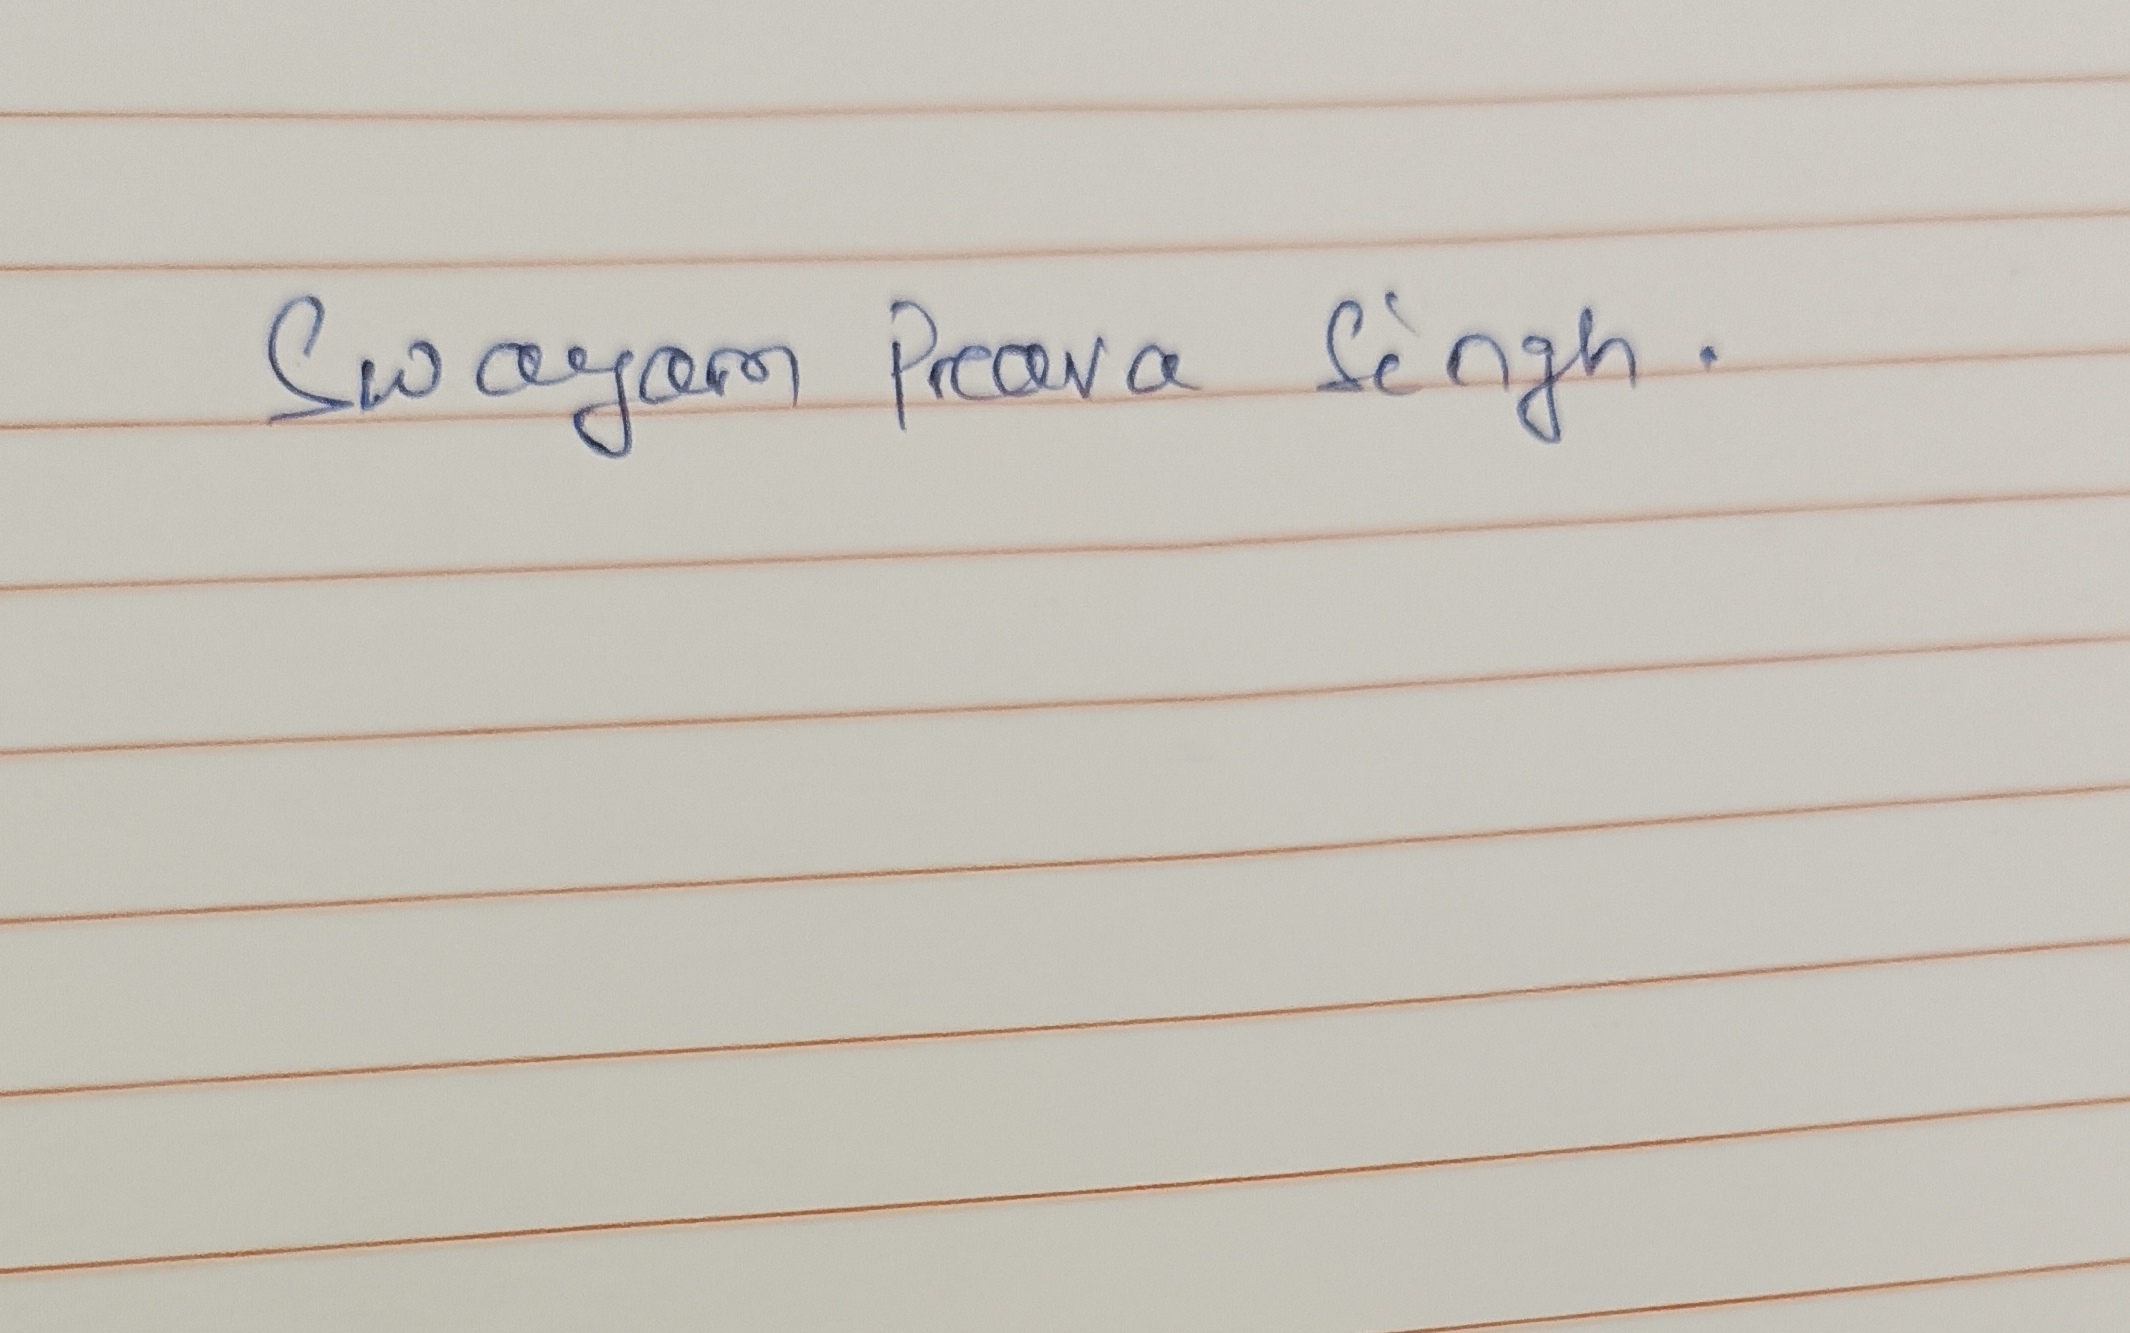 Swayam Prava Singh.